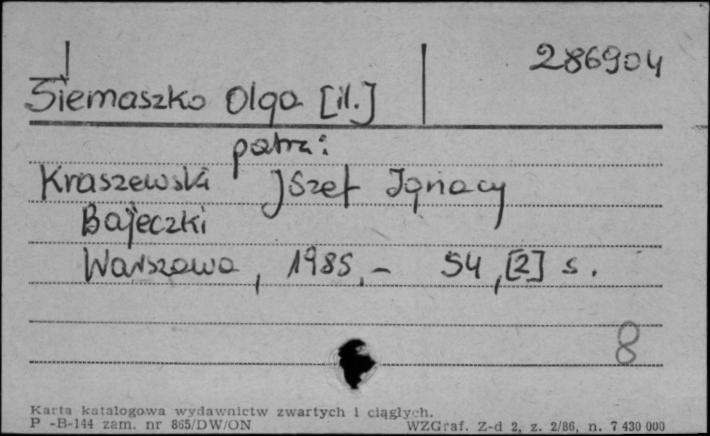 286904
Siemaszko Olga [il.]
patrz:
Kraszewski Jszef Ignacy
Bajeczki
Warszawa, 1985.- 54, [2] s.
8
Karta katalogowa wydawnictw zwartych i ciągłych.
P -B-144 zam. nr 865/DW/ON WZGraf. Z-d 2, z. 2/86, n. 7 430 000